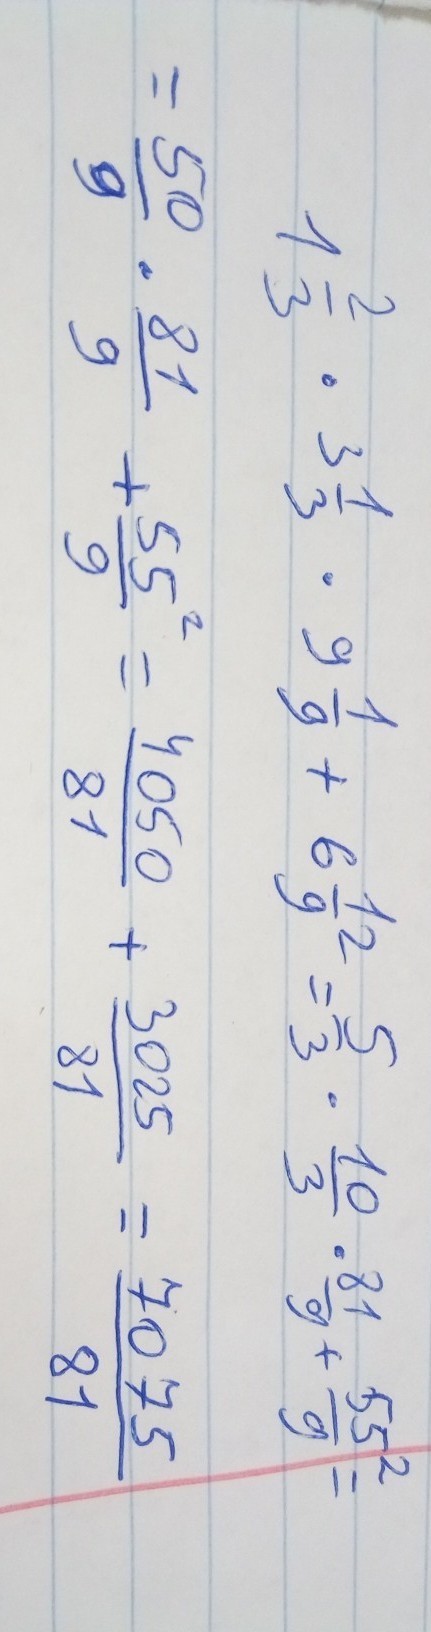 1 2/3 · 3 1/3 · 9 1/9 + 6 1/9² = 5/3 · 10/3 · 81/9 + 55²/9 =
= 50/9 · 81/9 + 55²/9 = 4050/81 + 3025/81 = 7075/81